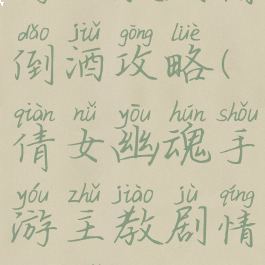 dǎo jiǔ gōng lüè
倒酒攻略(
qiàn nǚ yōu hún shǒu
倩女幽魂手
yóu zhǔ jiào jù qíng
游主教剧情